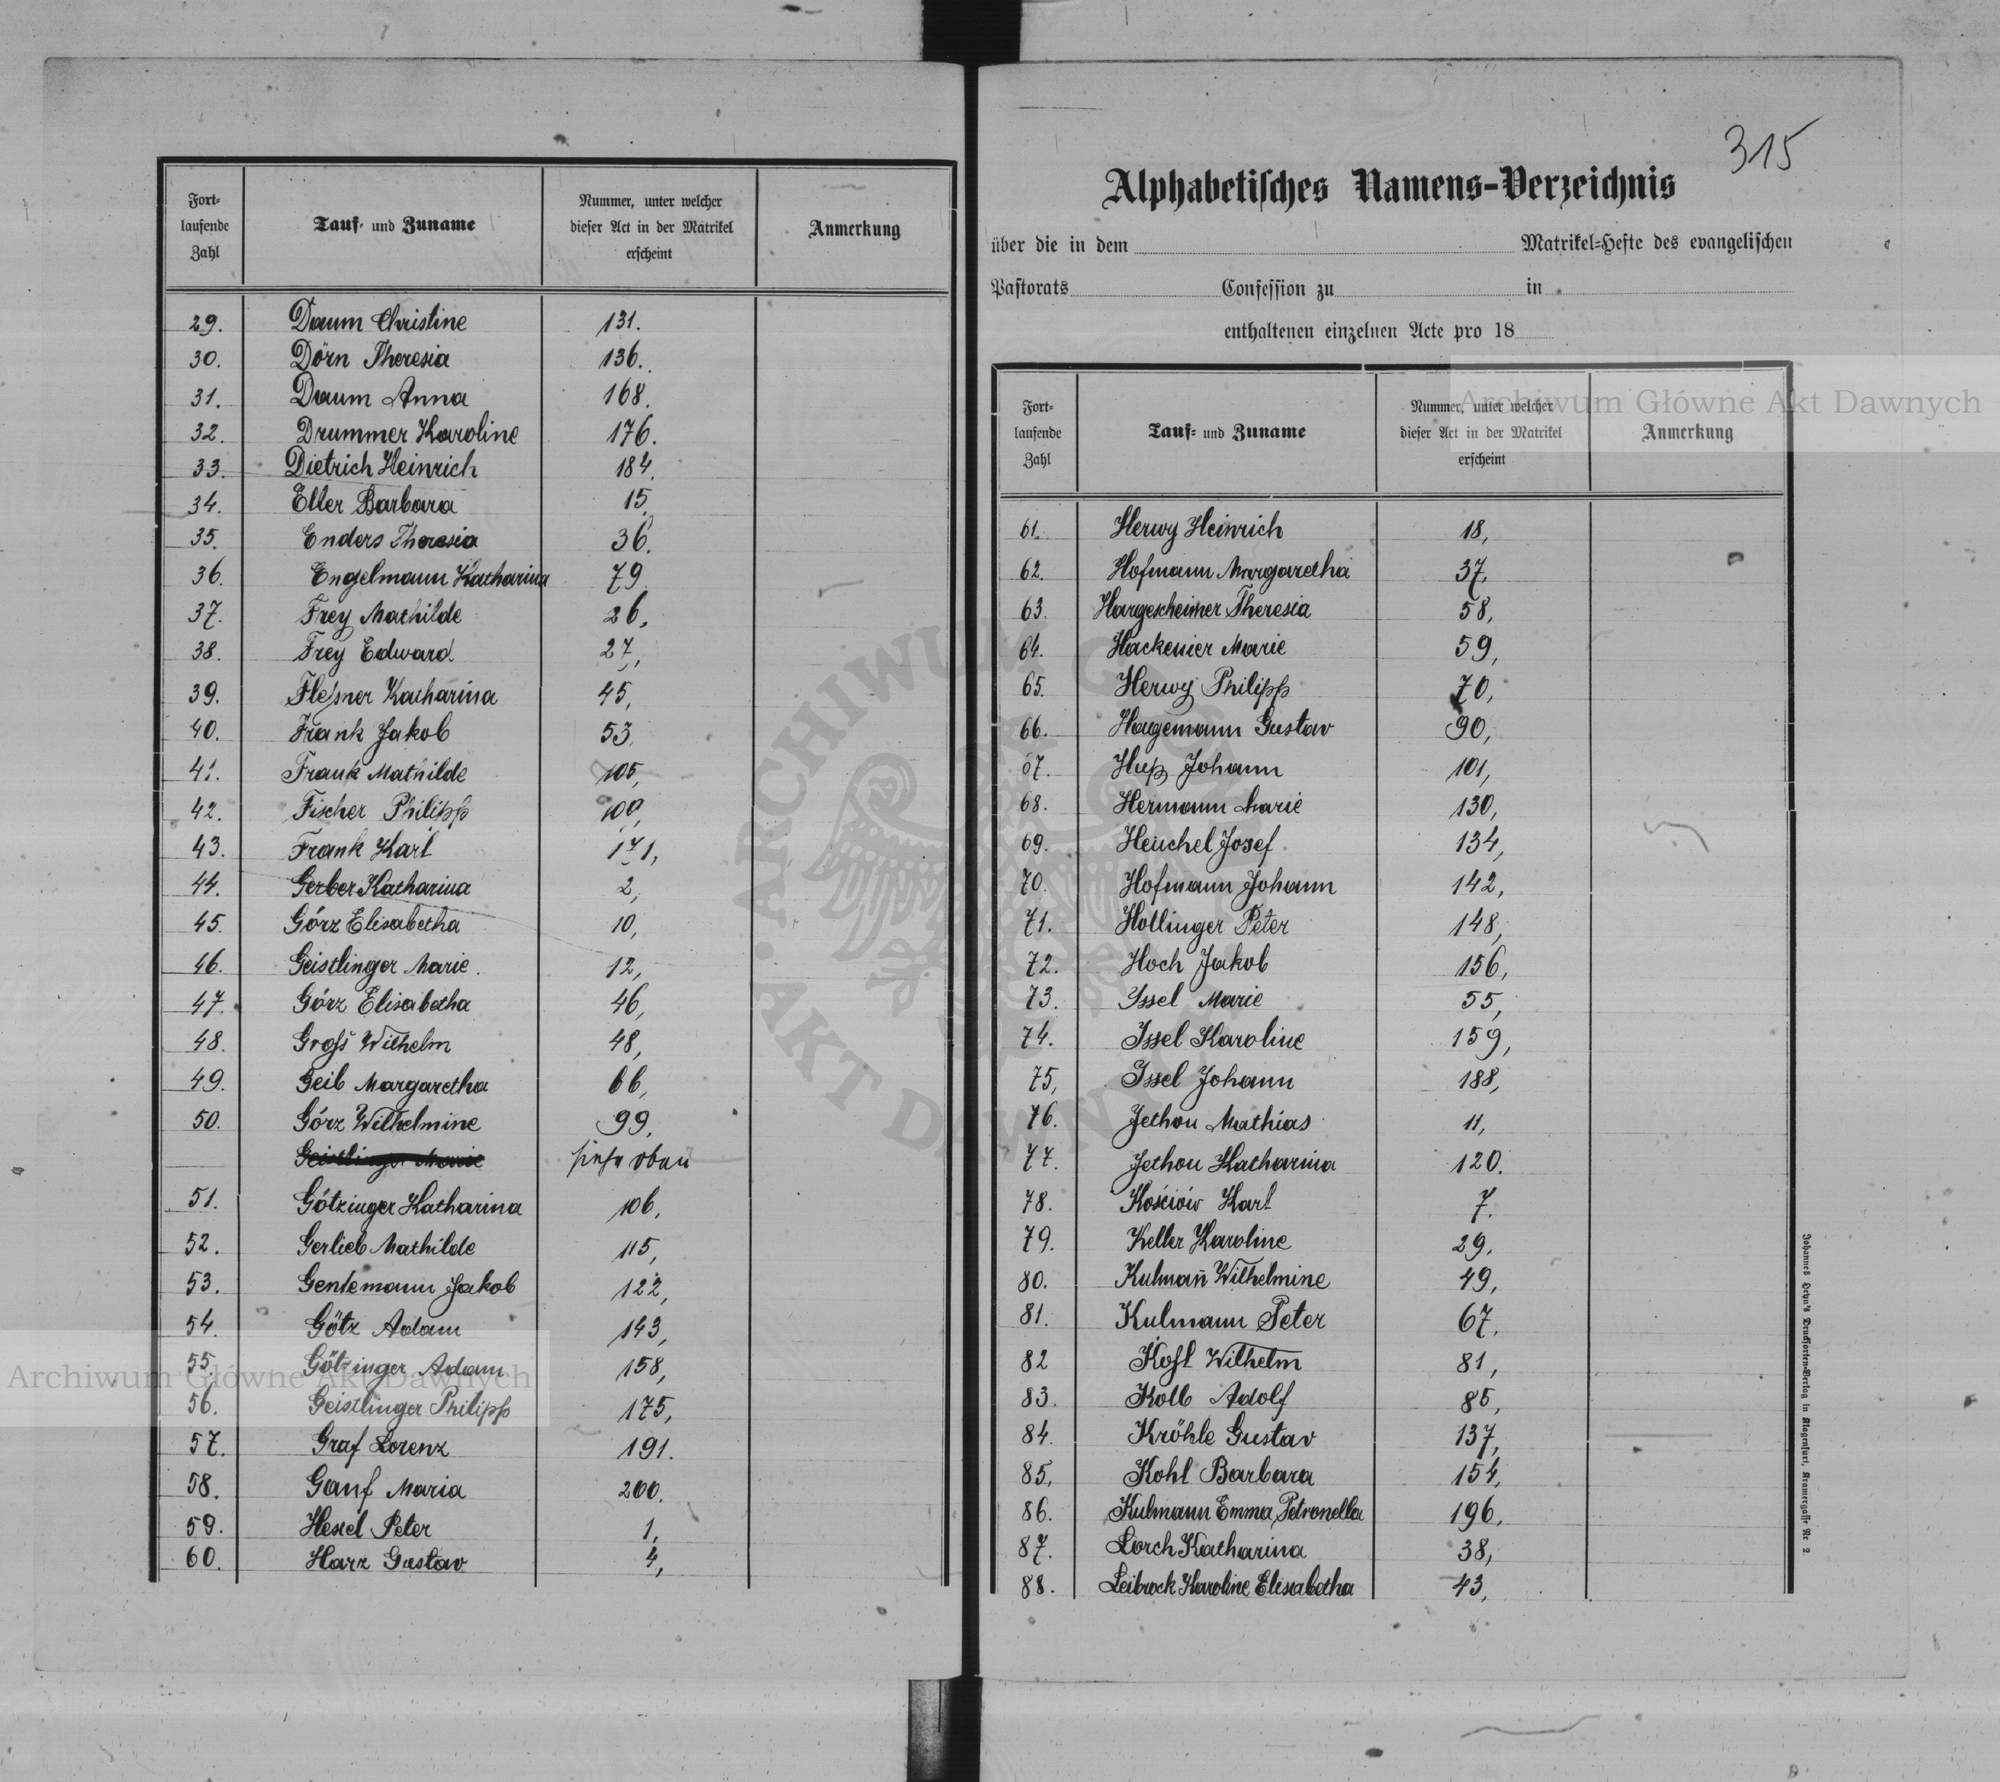 Fort-
laufende
Zahl
Tauf- und Zuname
Nummer, unter welcher
dieser Act in der Matrikel
erscheint
Anmerkung
29. Daum Christine 131.
30. Dörn Theresia 136.
31. Daum Anna 168.
32. Drummer Karoline 176.
33. Dietrich Heinrich 184.
34. Eller Barbara 15,
35. Enders Theresia 36.
36. Engelmann Katharina 79
37. Frey Mathilde 26,
38. Frey Edward 27,
39. Fleßner Katharina 45,
40. Frank Jakob 53,
41. Frank Mathilde 105,
42. Fischer Philipp 109,
43. Frank Karl 171,
44. Gerber Katharina 2,
45. Górz Elisabetha 10,
46. Geistlinger Marie. 12,
47. Górz Elisabetha 46,
48. Groß Wilhelm 48,
49. Geib Margaretha 66,
50. Górz Wilhelmine 99,
Geistlinger Marie siehe oben
51. Götzinger Katharina 106,
52. Gerlieb Mathilde 115,
53. Gentemann Jakob 122,
54. Götz Adam 143,
55, Götzinger Adam 158,
56. Geistlinger Philipp 175,
57. Graf Lorenz 191.
58. Ganf Maria 200.
59. Hexel Peter 1,
60. Harz Gustav 4,
315
Alphabetisches Namens-Verzeichnis
über die in dem Matrikel-Hefte des evangelischen
Pastorats Confession zu in
enthaltenen einzelnen Acte pro 18
Fort-
laufende
Zahl
Tauf- und Zuname
Nummer, unter welcher
dieser Act in der Matrikel
erscheint
Anmerkung
61. Herwy Heinrich 18,
62. Hofmann Margaretha 37,
63. Hargesheimer Theresia 58,
64. Hackenier Marie 59,
65. Herwy Philipp 70,
66. Hagemann Gustav 90,
67. Hup Johann 101,
68. Hermann Marie 130,
69. Heuchel Josef 134,
70. Hofmann Johann 142,
71. Hollinger Peter 148,
72. Hoch Jakob 156,
73. Issel Marie 55,
74. Issel Karoline 159,
75, Issel Johann 188,
76. Jethon Mathias 11,
77. Jethon Katharina 120.
78. Kościów Karl 7.
79. Keller Karoline 29,
80. Kulmañ Wilhelmine 49,
81. Kulmann Peter 67,
82 Kohl Wilhelm 81,
83. Kolb Adolf 85,
84. Kröhle Gustav 137,
85, Kohl Barbara 154,
86. Kulmann Emma, Petronella 196,
87. Lorch Katharina 38,
88. Leibrock Karoline Elisabetha 43,
Johannes Heyn's Drucksorten-Verlag in Klagenfurt, Kramergasse Nr. 2
Archiwum Główne Akt Dawnych
Archiwum Główne Akt Dawnych
ARCHIWUM GŁÓWNE
AKT DAWNYCH